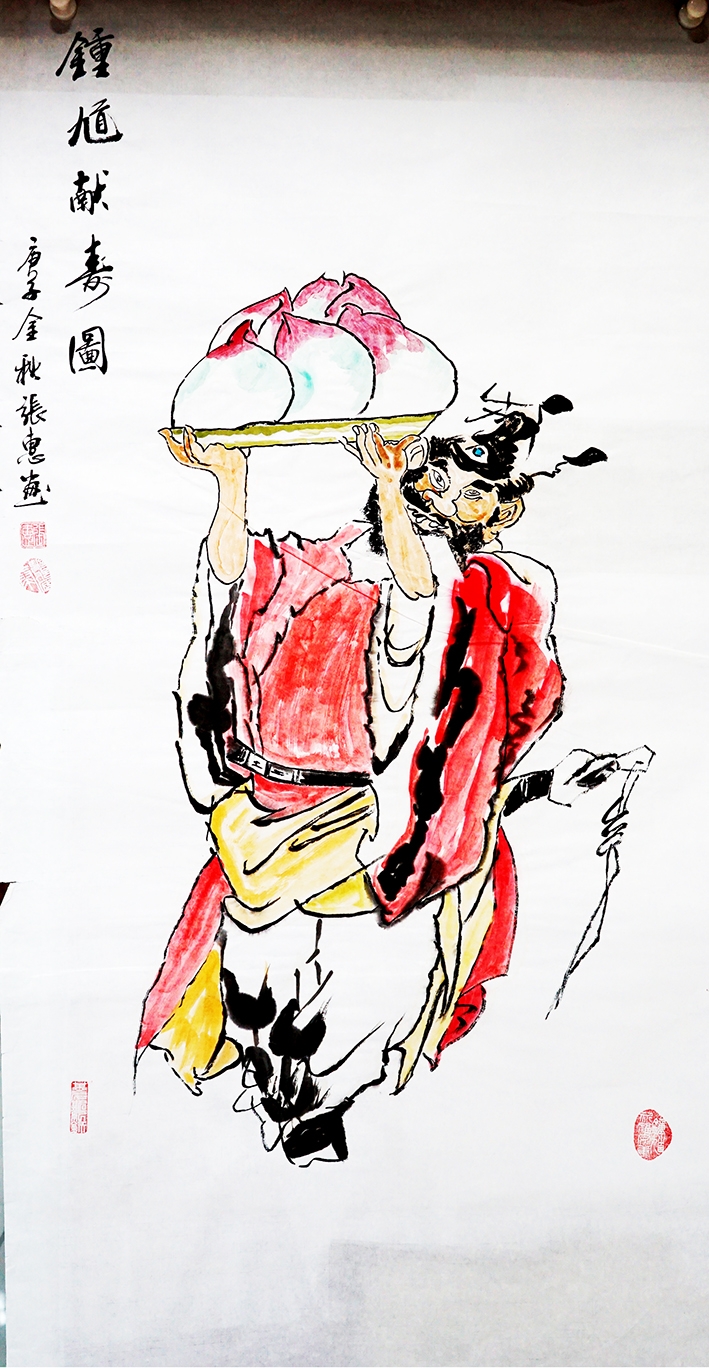 鍾馗献寿圖
庚子金秋張惠斌